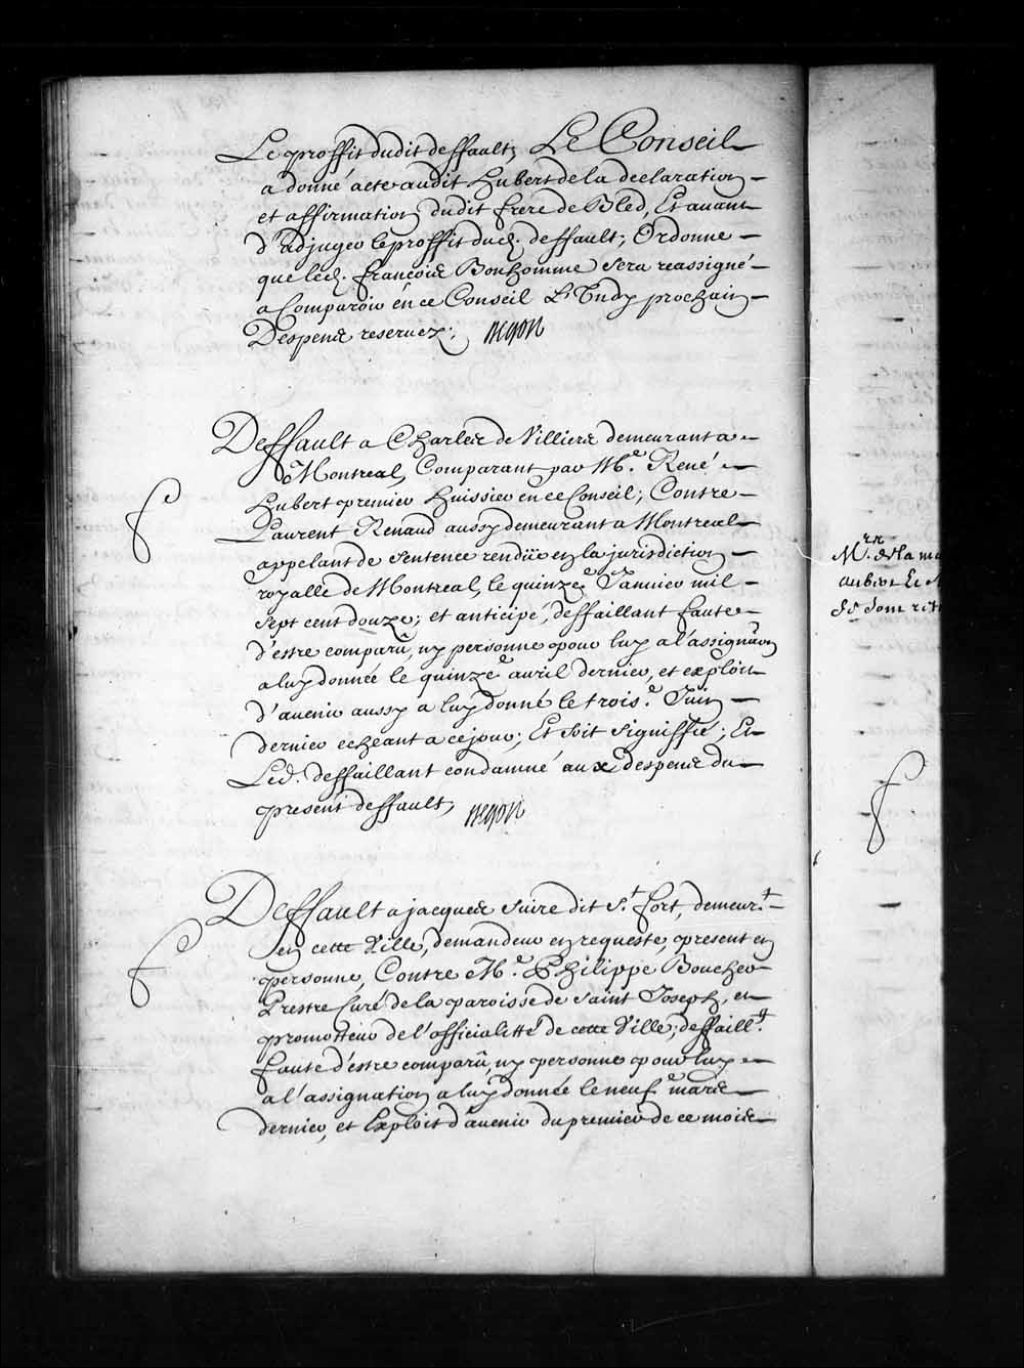 Le proffit dudit deffault, Le Conseil
a donné acte audit hubert de la declaration
et affirmation dudit frere de Bled, Et auant
d'adjuger le proffit dud. deffault; Ordonne
que led. françois Bonhomme sera reassigné
a Comparoir en ce Conseil Lundy prochain
Despens reseruez; Begon
Deffault a Charles de Villiers demeurant a
Montreal, Comparant par Me. René
hubert premier huissier en ce Conseil; Contre
Laurent Renaud aussy demeurant a Montreal
appelant de sentence rendüe en la jurisdiction
royalle de Montreal, le quinze.e Januier mil
sept cent douze; et anticipé, deffaillant faute
d'estre comparû, ny personne pour luy a l'assignaon
a luy donnée le quinze.e auril dernier, et exploit
d'auenir aussy a luy donné le trois.e Juin
dernier echeant a ce jour; Et soit signiffié; Et
Led. deffaillant condamné aux despens du
present deffault, Begon
Deffault a jacques suire dit St. fort, demeurt.
en cette Ville, demandeur en requeste, present en
personne, Contre Me. Philippe Boucher
Prestre Curé de la paroisse de saint Joseph, et
promotteur de l'officialitté de cette Ville; deffaillt.
faute d'estre comparû, ny personne pour luy
a l'assignation a luy donnée le neuf.e mars
dernier, et Exploit d'auenir du premier de ce mois